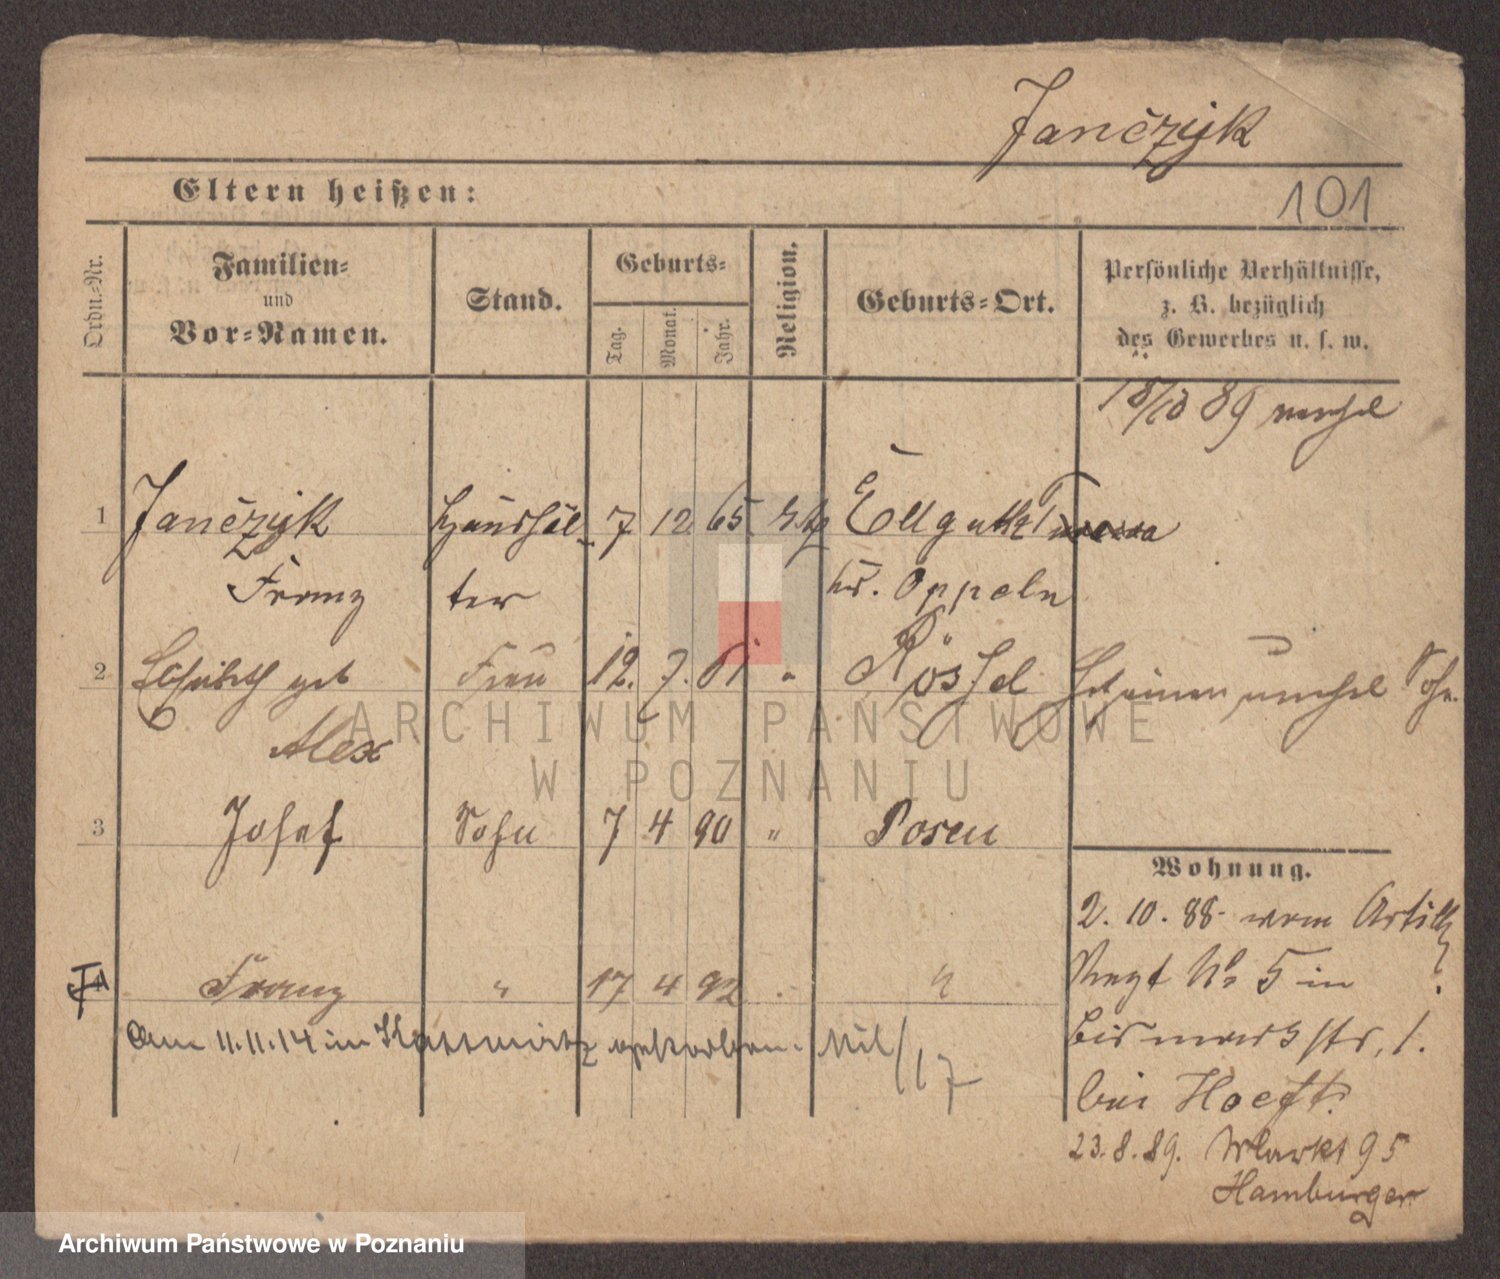 Jančzyk
Eltern heißen:
101
Ordn.-Nr.
Familien-
und
Vor-Namen.
Stand.
Geburts-
Tag.
Monat.
Jahr.
Religion.
Geburts-Ort.
Persönliche Verhältnisse,
z. B. bezüglich
des Gewerbes u. s. w.
18/10 89
1 Jančzyk Haushäl- 7 12 65 Ellguth
Franz ter Kr. Oppeln
2 geb Frau 12. 7. 61 " Rössel
Alex
3 Josef Sohn 7 4 90 " Posen
Franz " 17 4 92 "
Am 11.11.14 in Kattowitz gestorben. Mil/17
Wohnung.
2. 10. 88 vom Artill
Regt No 5 in
Bismarckstr. 1.
bei Hoeft.
23. 8. 89. WMarkt 95
Hamburger
ARCHIWUM PAŃSTWOWE
W POZNANIU
Archiwum Państwowe w Poznaniu